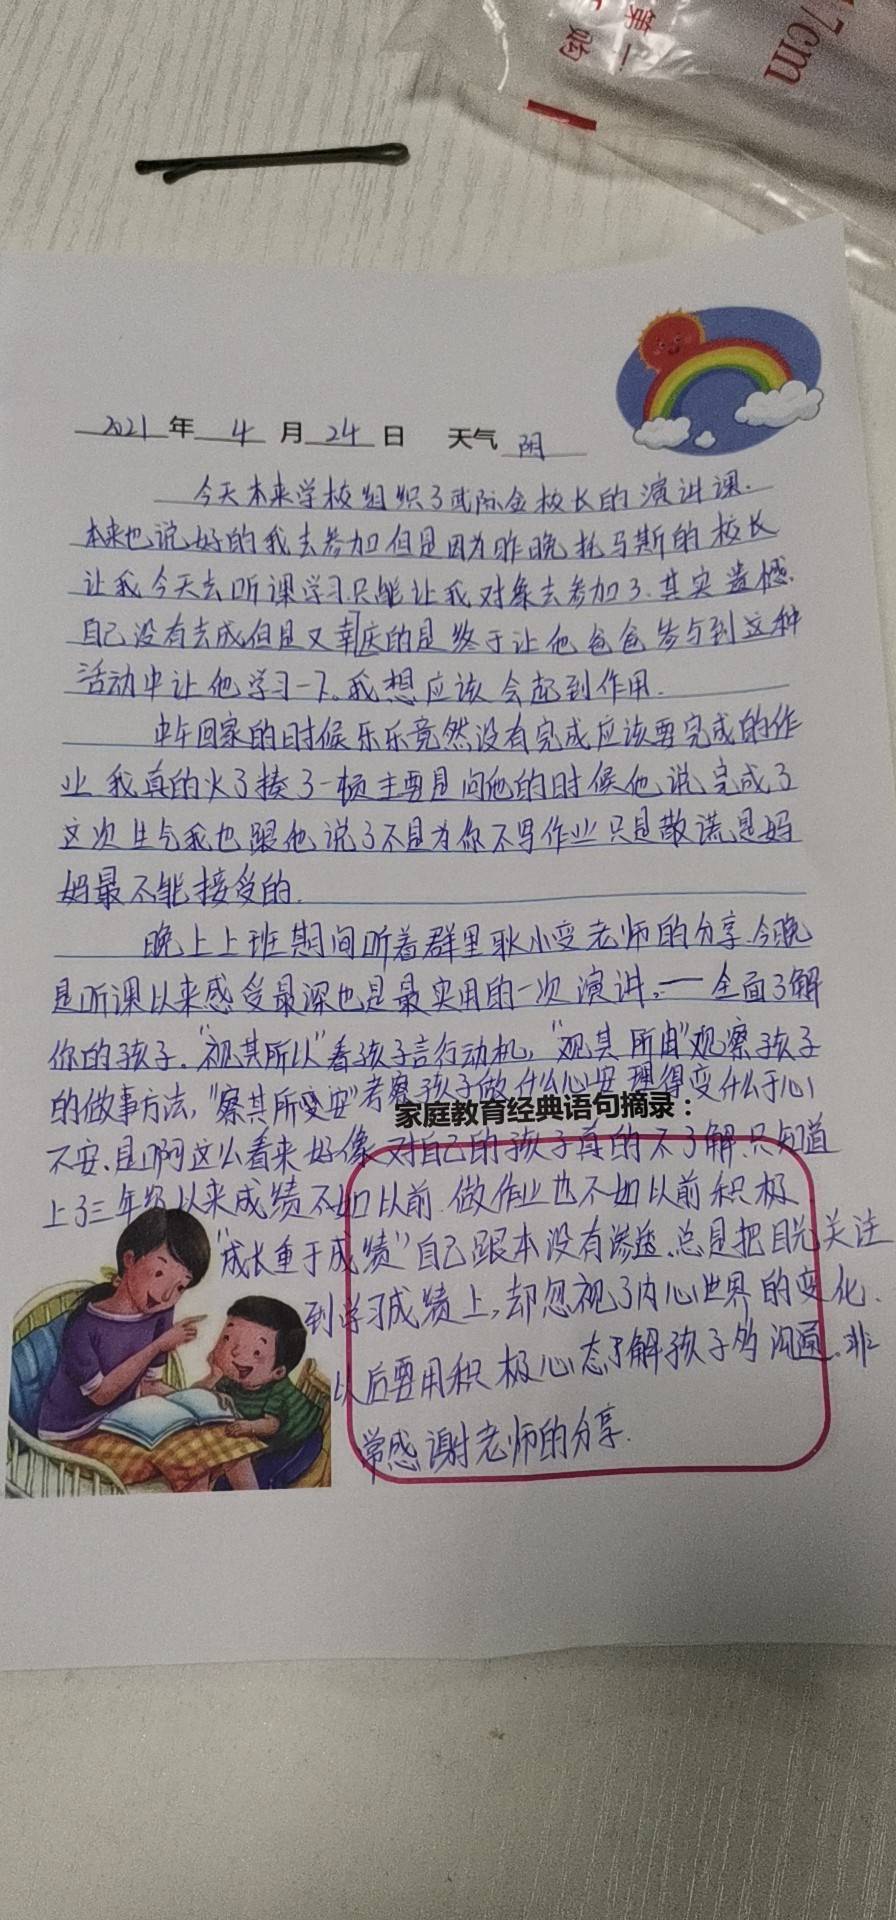 17cm
2021年4月24日 天气 阴
今天本来学校组织了武际金校长的演讲课.
本来也说好的我去参加但是因为昨晚托马斯的校长
让我今天去听课学习只能让我对象去参加了.其实遗憾.
自己没有去成但是又幸庆的是终于让他爸爸参与到这种
活动中让他学习一下。我想应该会起到作用.
中午回家的时候乐乐竟然没有完成应该要完成的作
业我真的火了揍了一顿主要是问他的时候他说完成了
这次生气我也跟他说了不是为你不写作业只是散谎是妈
妈最不能接受的.
晚上上班期间听着群里耿小变老师的分享.今晚
是听课以来感受最深也是最实用的一次演讲.一全面了解
你的孩子."视其所以"看孩子言行动机,"观其所由"观察孩子
的做事方法,"察其所安"考察孩子做什么心安理得变什么于心
家庭教育经典语句摘录：
不安.是啊这么看来好像对自己的孩子真的不了解.只知道
上了三年级以来成绩不如以前.做作业也不如以前积极
"成长重于成绩"自己跟本没有渗透.总是把目光关注
到学习成绩上,却忽视了内心世界的变化.
以后要用积极心态了解孩子的沟通.非
常感谢老师的分享.